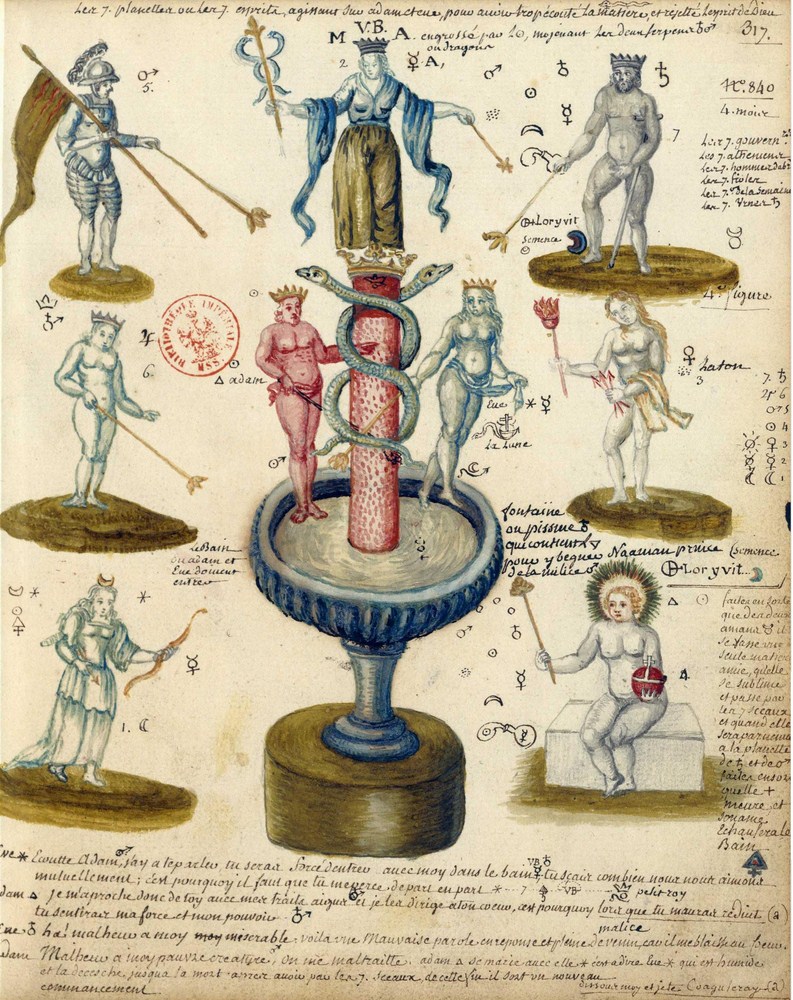 Les 7. planettes ou les 7. esprits, agissant sur adam et eve, pour avoir trop écouté la matiere, et rejetté l'esprit de Dieu
317.
M V.B. A
engrossé par le ☉, moyenant les deux serpens
ou dragons
2 ☿ A,
♂
5.
♄
7
N.º 840
4. moix
Les 7. gouvern.rs
Les 7. atheniens
Les 7. hommes
Les 7.
Les 7. de la Semaine
Les 7.
Loryvit
Semence
4.e figure
BIBLIOTHÈQUE IMPÉRIALE MSS
♃
6.
△ adam
Eve * ☿
La Lune
♀
3
Laton
7. ♄
♃ 6
♂ 5
☉ 4
♀ 3
☿ 2
☾ 1
Le Bain
ou adam et
Eve doivent
entrer
fontaine
ou pissine
qui contient
pour y baigner Naaman prince
de la milice
(semence
Loryvit...
1. ☾
☿
4
faites en sorte
que des deux
amans il
se fasse une
seule matiere
unie, qu'elle
se sublime
et passe par
les 7 sceaux
et quand elle
sera parvenue
a la planette
de ♄ et de ♂
faites ensorte
quelle +
meure, et
son ame
Echauffera le
Bain
Eve * Ecoutte Adam, j'ay a te parler, tu seras forcé d'entrer avec moy dans le bain, tu sçais combien nous nous aimons
mutuellement; c'est pourquoy il faut que tu me perce de part en part * 7 VB petit roy
adam △ je m'aproche donc de toy avec mes traits aigus et je les dirige a ton coeur, c'est pourquoy lors que tu m'auras reduit (a)
tu sentiras ma force et mon pouvoir
malice
Eve ha! malheur a moy miserable, voila une mauvaise parole en reponse et pleine de venin, car il me blaisse au coeur.
adam Malheur a moy pauvre creature, on me maltraitte. adam △ se marie avec elle * c'est a dire Eve * qui est humide
et la desseche, jusqu'a la mort apres avoir par les 7. sceaux il sort un nouveau
commancement
dissous moy et je te Coaguleray (a)